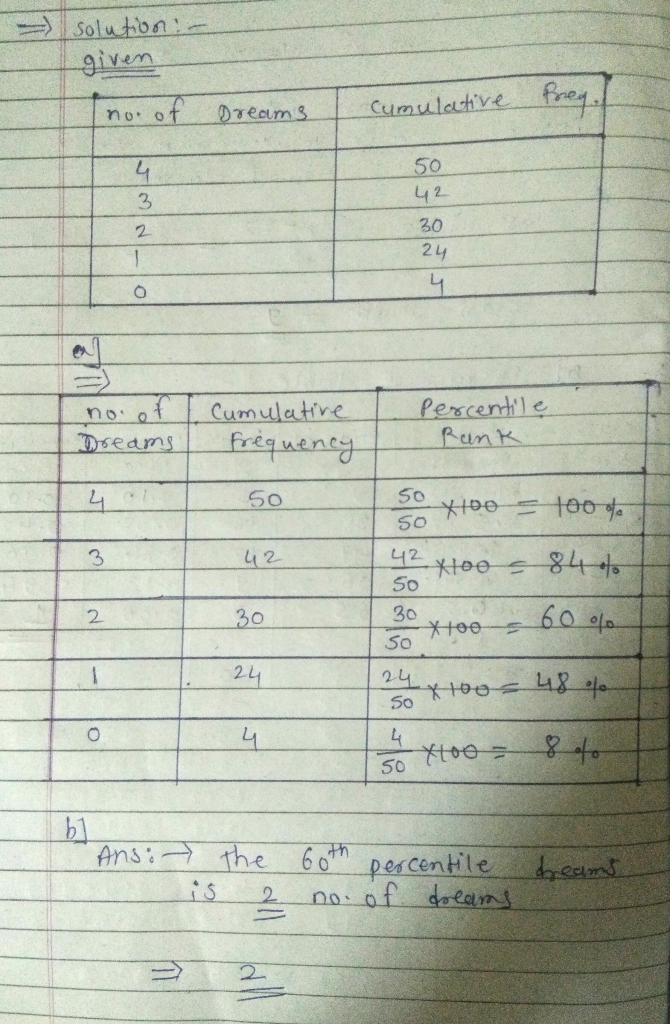 ⇒ solution:-
given
no. of Dreams | Cumulative freq.
4 | 50
3 | 42
2 | 30
1 | 24
0 | 4
a]
⇒
no. of | Cumulative | Percentile
Dreams | frequency | Rank
4 | 50 | 50/50 ×100 = 100 %
3 | 42 | 42/50 ×100 = 84 %
2 | 30 | 30/50 ×100 = 60 %
1 | 24 | 24/50 ×100 = 48 %
0 | 4 | 4/50 ×100 = 8 %
b]
Ans:→ the 60th percentile dreams
is 2 no. of dreams
⇒ 2